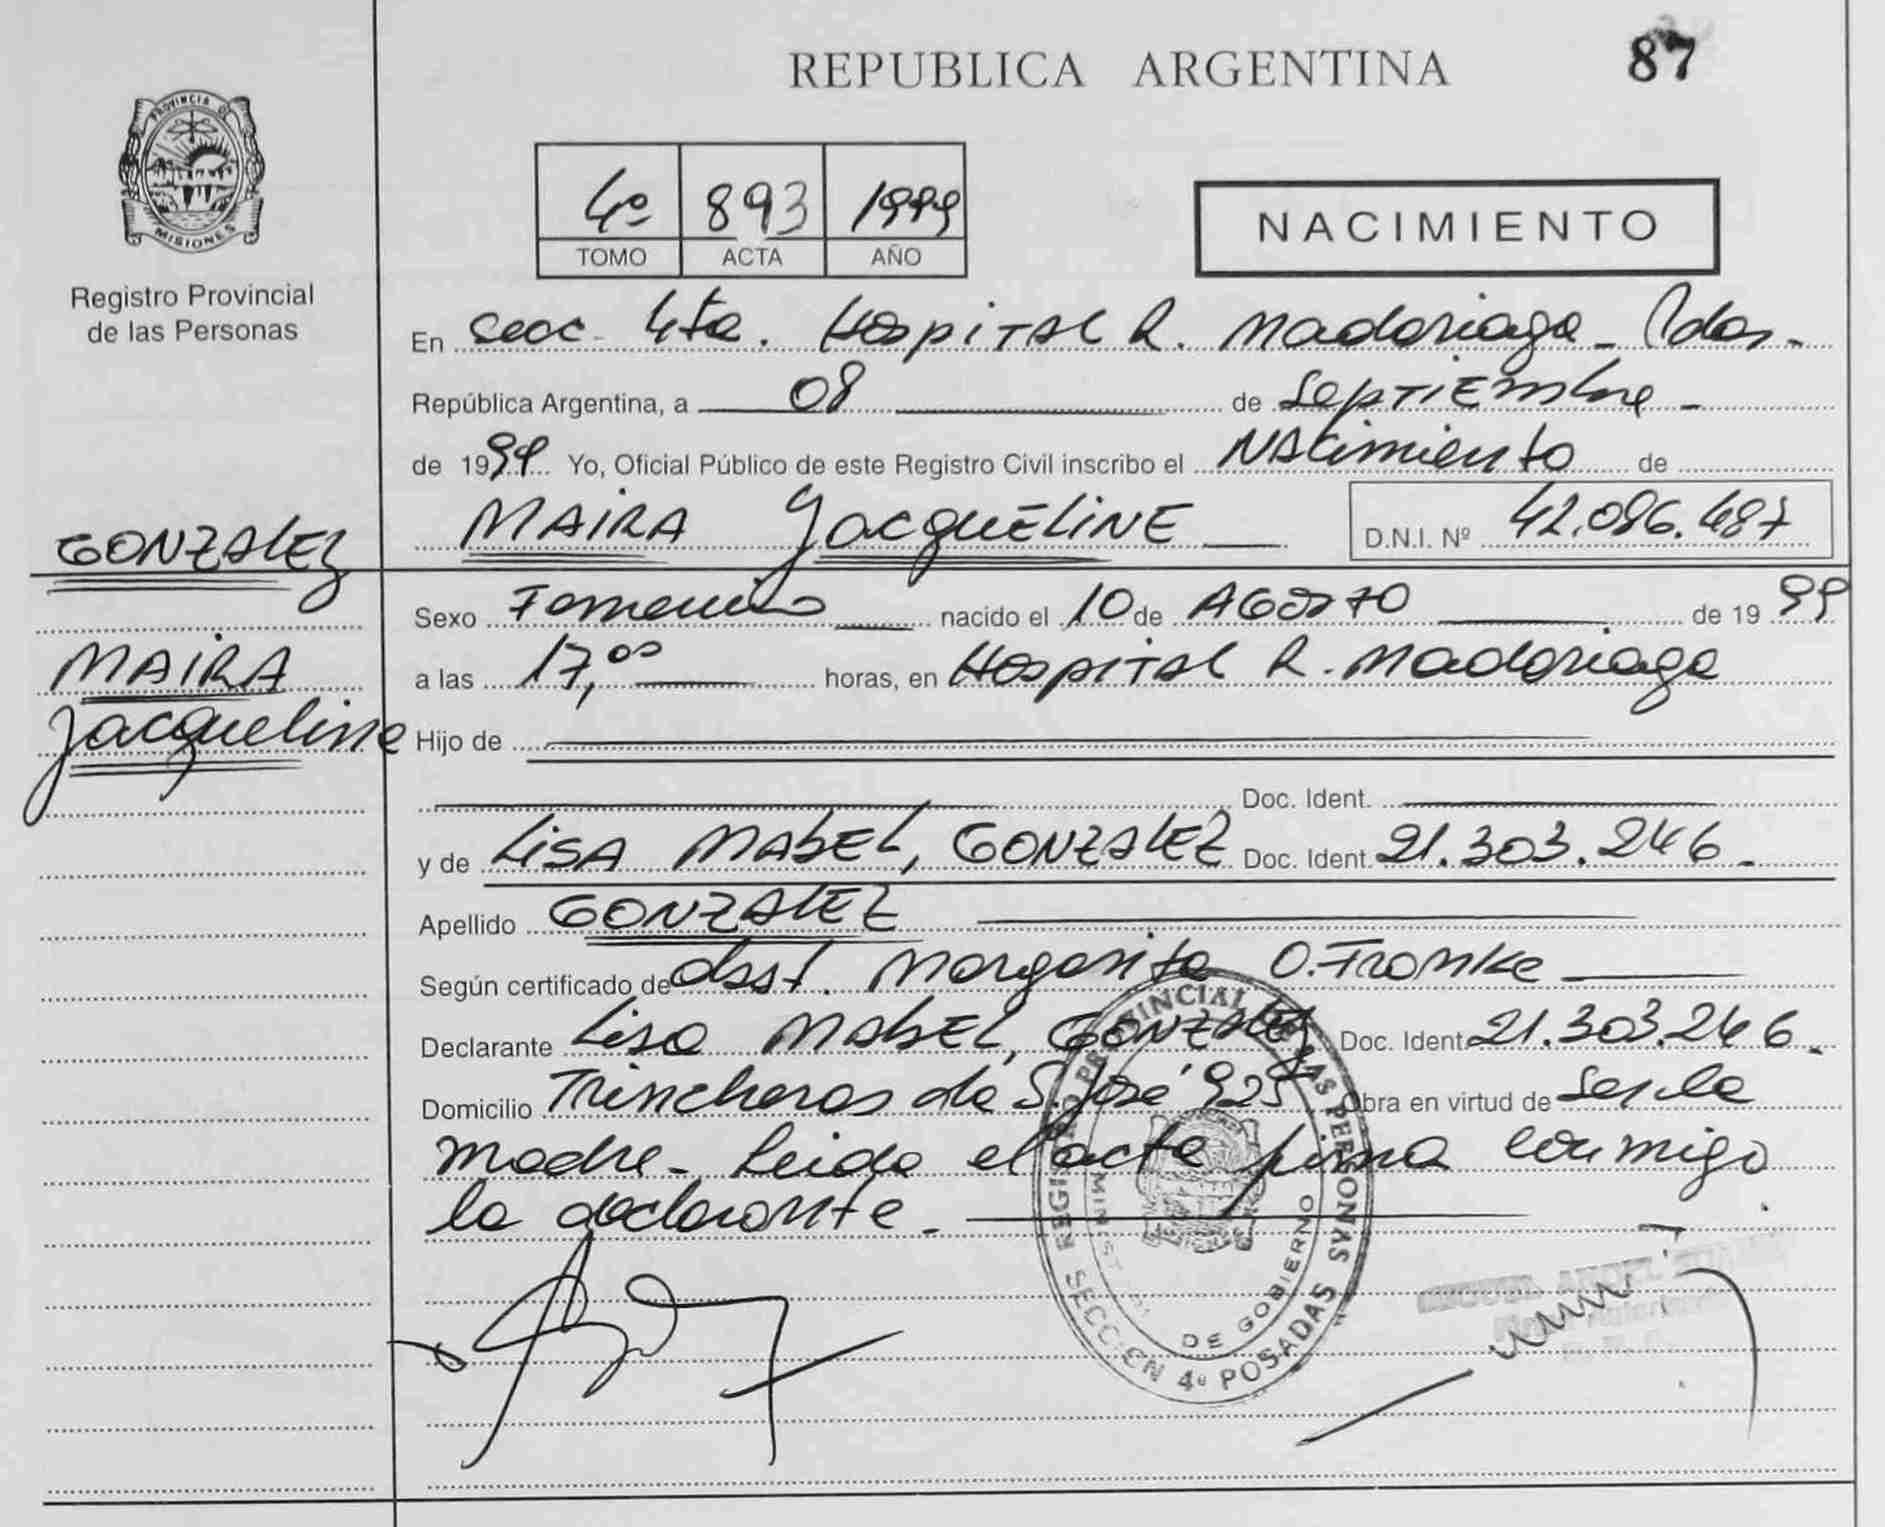 REPUBLICA ARGENTINA
87
PROVINCIA DE
MISIONES
Registro Provincial
de las Personas
4º 893 1999
TOMO ACTA AÑO
NACIMIENTO
En Secc. 4ta. Hospital R. Madariaga - Pdas.-
República Argentina, a 08 de Septiembre -
de 1999 Yo, Oficial Público de este Registro Civil inscribo el Nacimiento de
MAIRA Jacqueline D.N.I. Nº 42.086.487
GONZALEZ
MAIRA
Jacqueline
Sexo Femenino nacido el 10 de Agosto de 1999
a las 17,00 horas, en Hospital R. Madariaga
Hijo de
Doc. Ident.
y de Lisa Mabel, GONZALEZ Doc. Ident. 21.303.246.-
Apellido GONZALEZ
Según certificado de Obst. Margarita O. Fromke
Declarante Lisa Mabel, GONZALEZ Doc. Ident. 21.303.246.-
Domicilio Trincheras de S. José 925 Obra en virtud de Ser la
madre - Leida el acta firma conmigo
la declarante.-
REGISTRO PROVINCIAL DE LAS PERSONAS
MINISTERIO DE GOBIERNO
SECCION 4º POSADAS
MIGUEL ANGEL